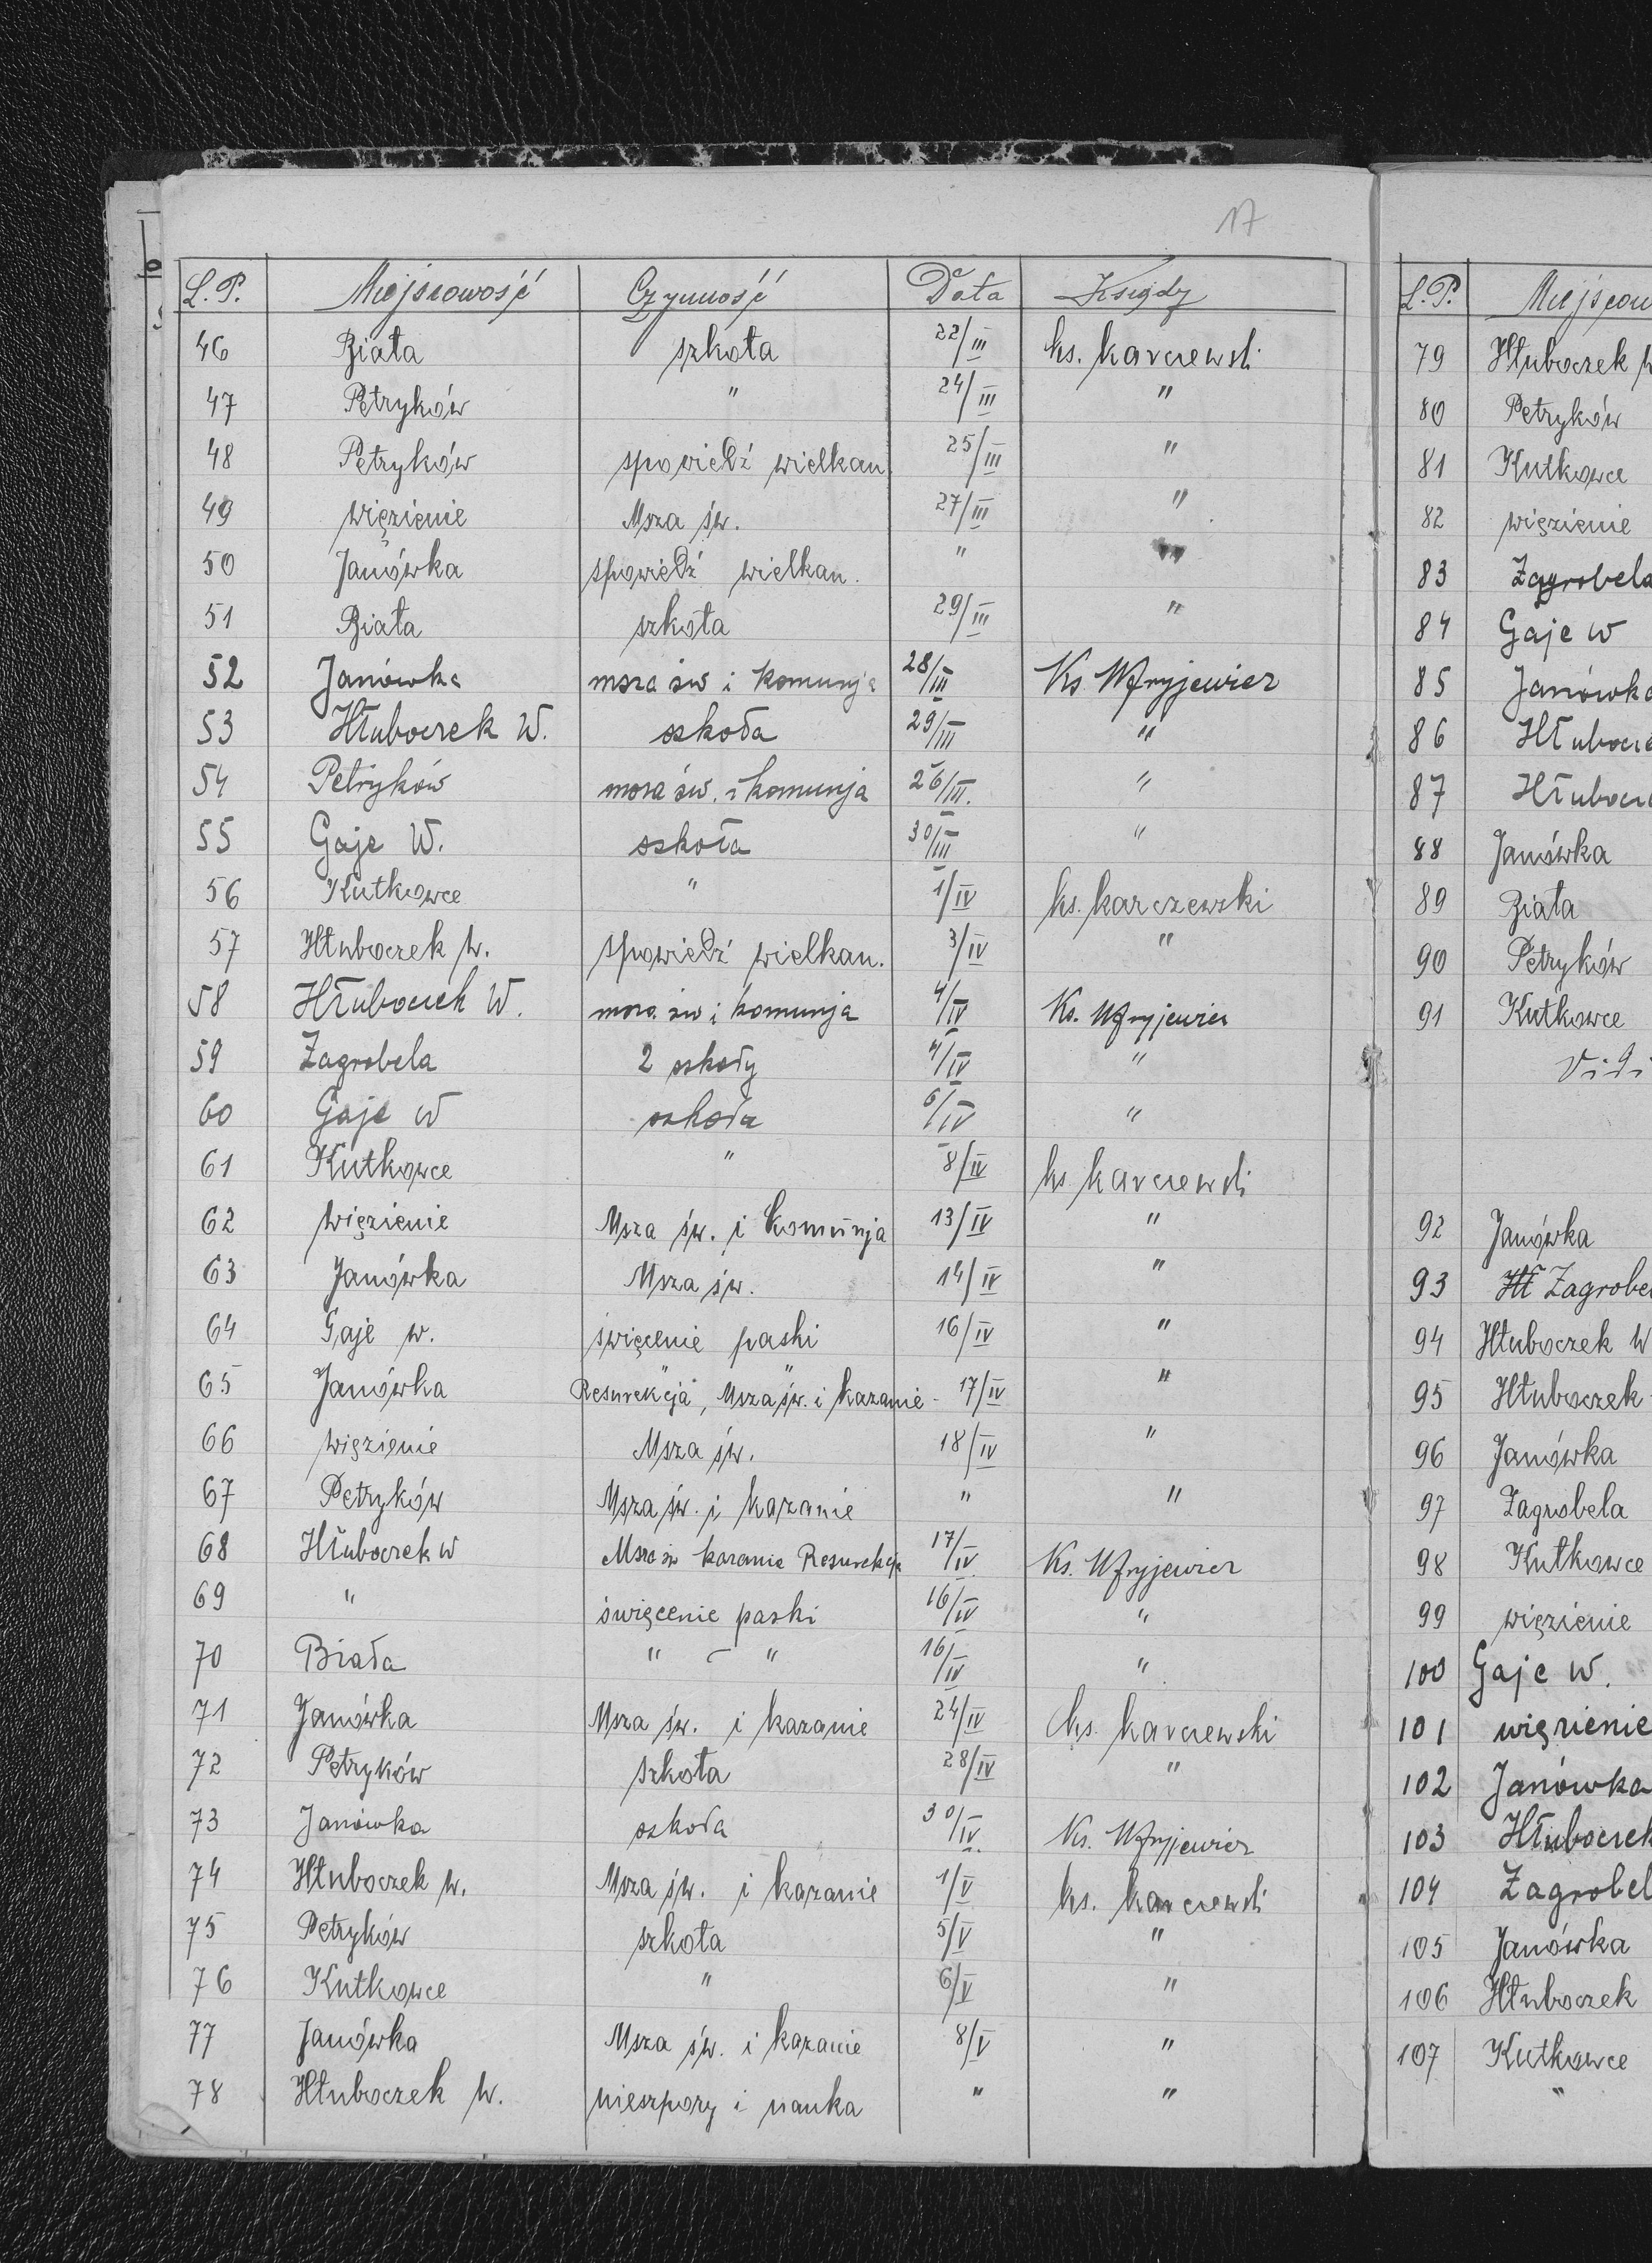 17
L.P. Miejscowość Czynność Data Księdy
46 Biała szkoła 22/III ks. Karczewski
47 Petryków " 24/III "
48 Petryków spowiedź wielkan. 25/III "
49 więzienie Msza św. 27/III "
50 Janówka spowiedź wielkan. " "
51 Biała szkoła 29/III "
52 Janówka msza św i komunja 28/III Ks
53 Hłuboczek W. szkoła 29/III "
54 Petryków msza św. i komunja 26/III. "
55 Gaje W. szkoła 30/III "
56 Kutkowce " 1/IV ks. Karczewski
57 Hłuboczek W. spowiedź wielkan. 3/IV "
58 Hłuboczek W. msza św i komunja 4/IV Ks.
59 Zagrobela 2 szkoły 4/IV "
60 Gaje W szkoła 6/IV "
61 Kutkowce " 8/IV ks Karczewski
62 więzienie Msza św. i Komunja 13/IV "
63 Janówka Msza św. 14/IV "
64 Gaje w. święcenie paski 16/IV "
65 Janówka "Resurekcja", Msza św. i kazanie - 17/IV "
66 więzienie Msza św. 18/IV "
67 Petryków Msza św. i kazanie " "
68 Hłuboczek W Msza św kazanie Resurekcja 17/IV. Ks.
69 " święcenie paski 16/IV "
70 Biała " - " 16/IV "
71 Janówka Msza św. i kazanie 24/IV ks. Karczewski
72 Petryków szkoła 28/IV "
73 Janówka szkoła 30/IV. Ks.
74 Hłuboczek W. Msza św. i kazanie 1/V ks. Karczewski
75 Petryków szkoła 5/V "
76 Kutkowce " 6/V "
77 Janówka Msza św. i kazanie 8/V "
78 Hłuboczek W. nieszpory i nauka " "
L.P. Miejscow
79 Hłuboczek W
80 Petryków
81 Kutkowce
82 więzienie
83 Zagrobela
84 Gaje W
85 Janówka
86 Hłubocz
87 Hłubocz
88 Janówka
89 Biała
90 Petryków
91 Kutkowce
Vidi
92 Janówka
93 Hł Zagrobe
94 Hłuboczek W
95 Hłuboczek
96 Janówka
97 Zagrobela
98 Kutkowce
99 więzienie
100 Gaje W.
101 więzienie
102 Janówka
103 Hłuboczek
104 Zagrobel
105 Janówka
106 Hłuboczek
107 Kutkowce
"